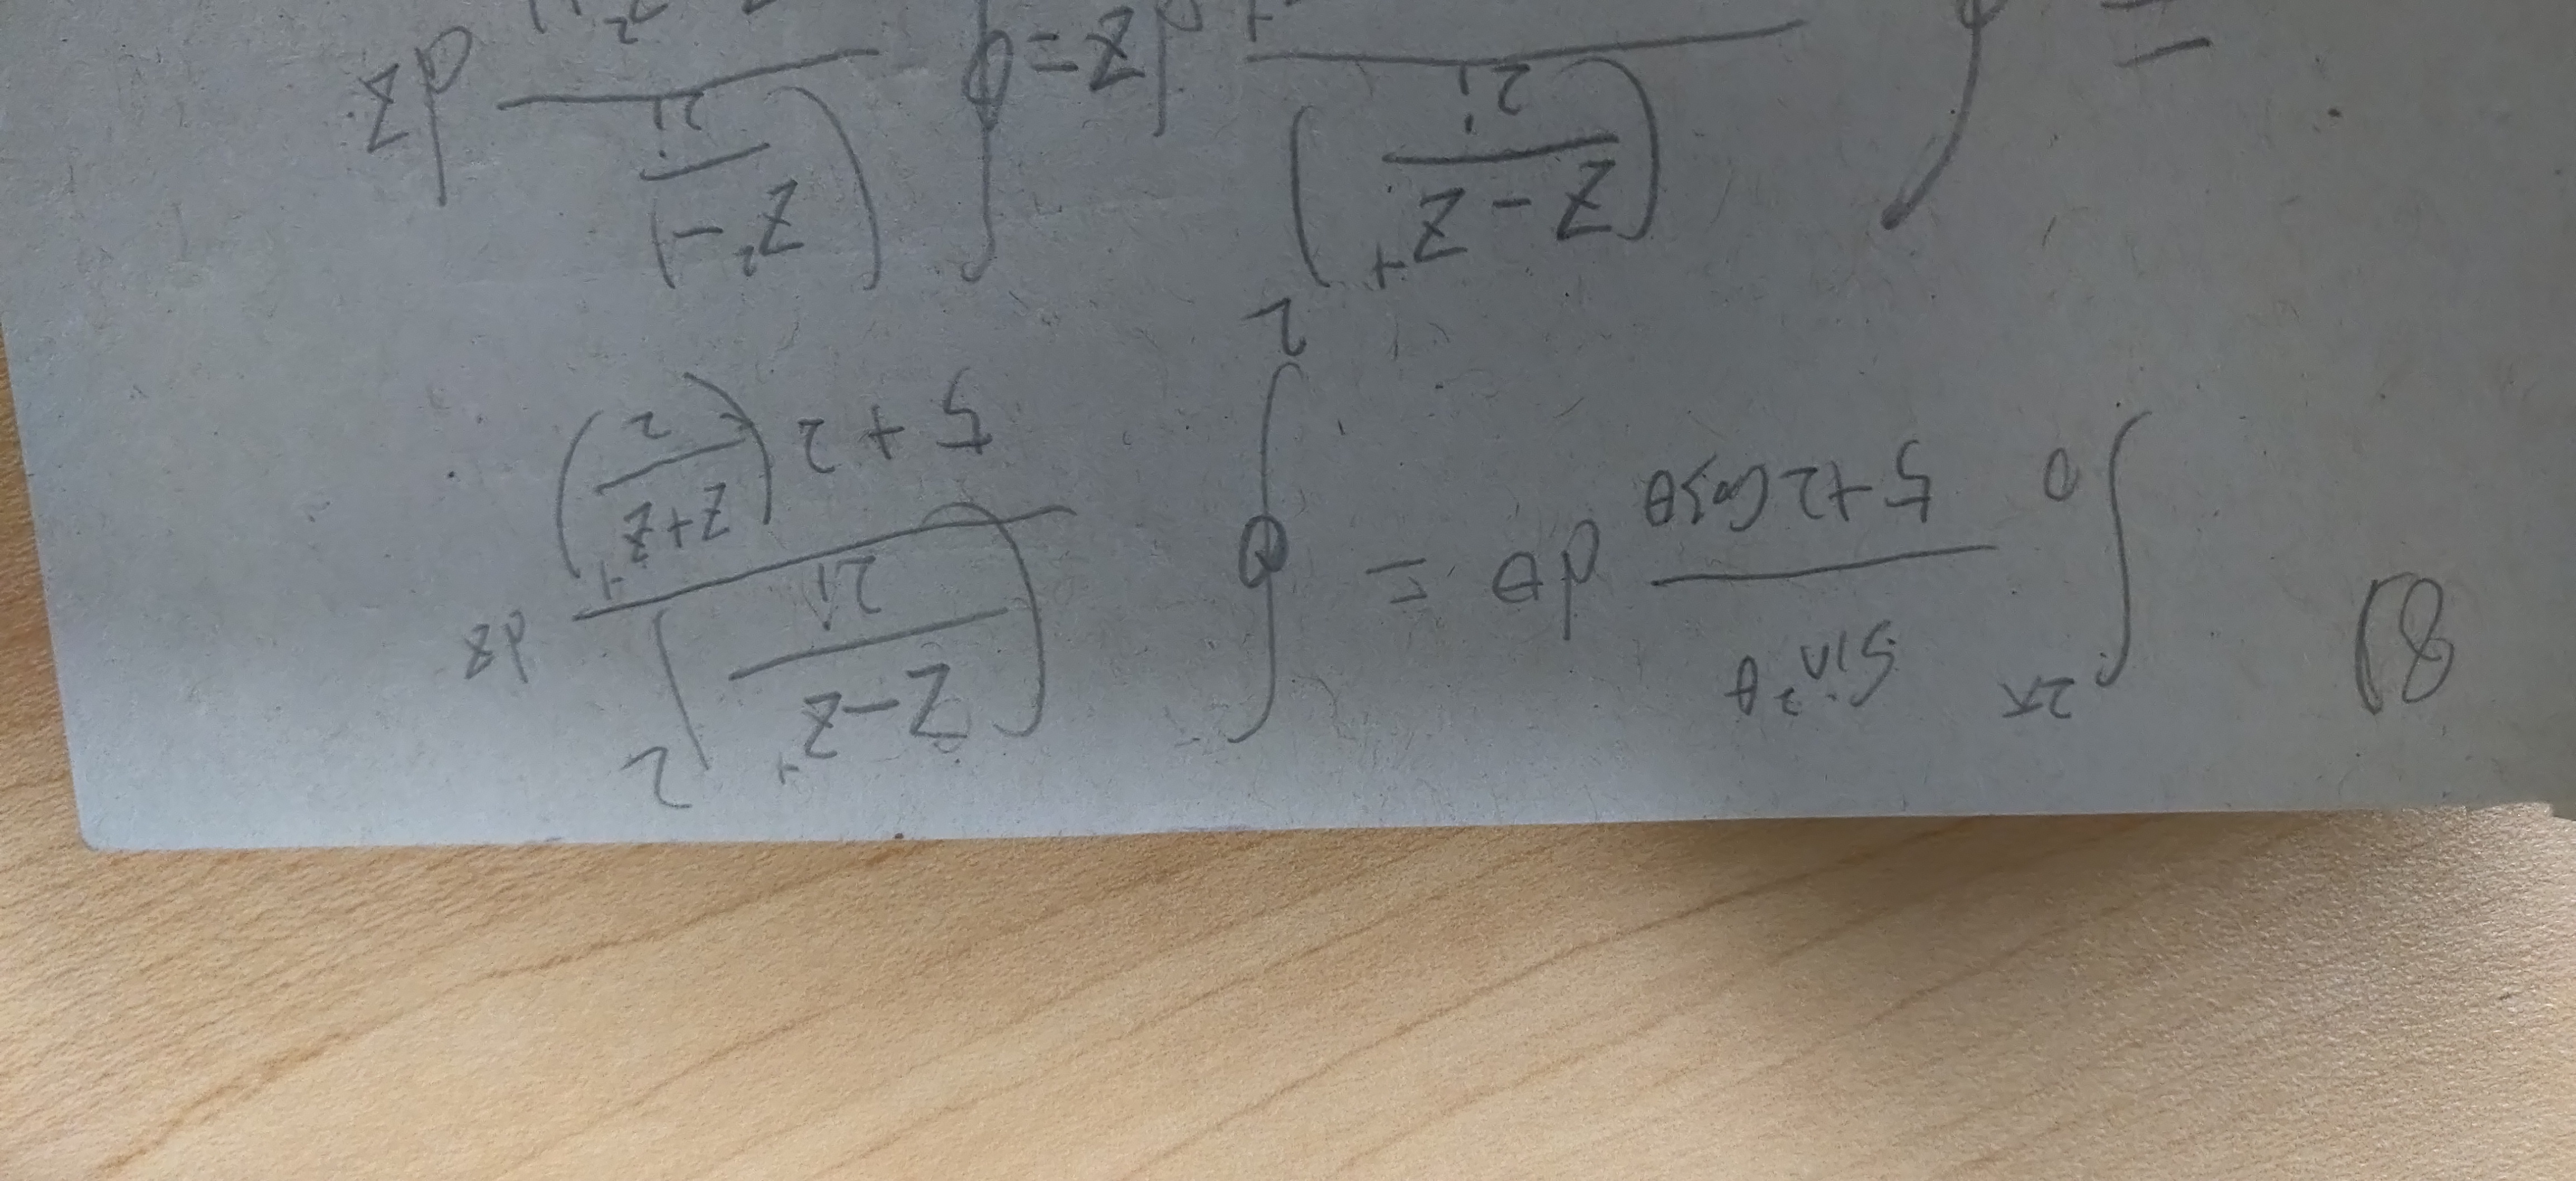 8) ∫_0^{2π} \frac{sin²θ}{5+2cosθ} dθ = ∮_2 \frac{(\frac{z-z^{-1}}{2i})^2}{5+2(\frac{z+z^{-1}}{2})} dz
= ∮ (\frac{z-z^{-1}}{2i})^2 dz = ∮ (\frac{z²-1}{2i} dz